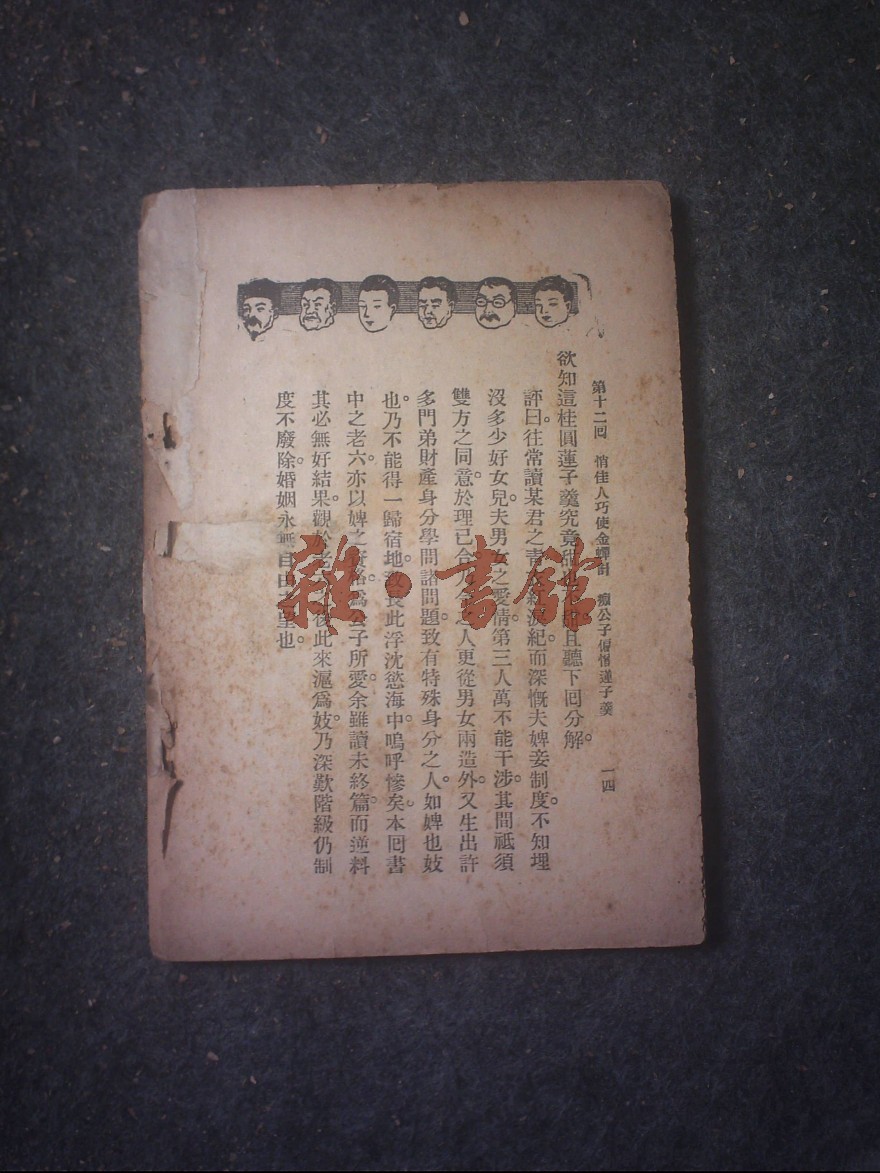 第十二回 俏佳人巧使金蟬計 癡公子偏憎蓮子羹 一四
欲知這桂圓蓮子羹究竟 且聽下回分解。
評曰。往常讀某君之青 紀而深慨夫婢妾制度。不知埋
沒多少好女兒。夫男女之愛情。第三人萬不能干涉。其間祗須
雙方之同意。於理已合。 人更從男女兩造外。又生出許
多門弟財產身分學問諸問題。致有特殊身分之人。如婢也妓
也。乃不能得一歸宿地。 長此浮沈慾海中。嗚呼慘矣。本回書
中之老六。亦以婢之 爲公子所愛。余雖讀未終篇。而逆料
其必無好結果。觀於老 後此來滬爲妓。乃深歎階級仍制
度不廢除。婚姻永無自由 望也。
雜·書館